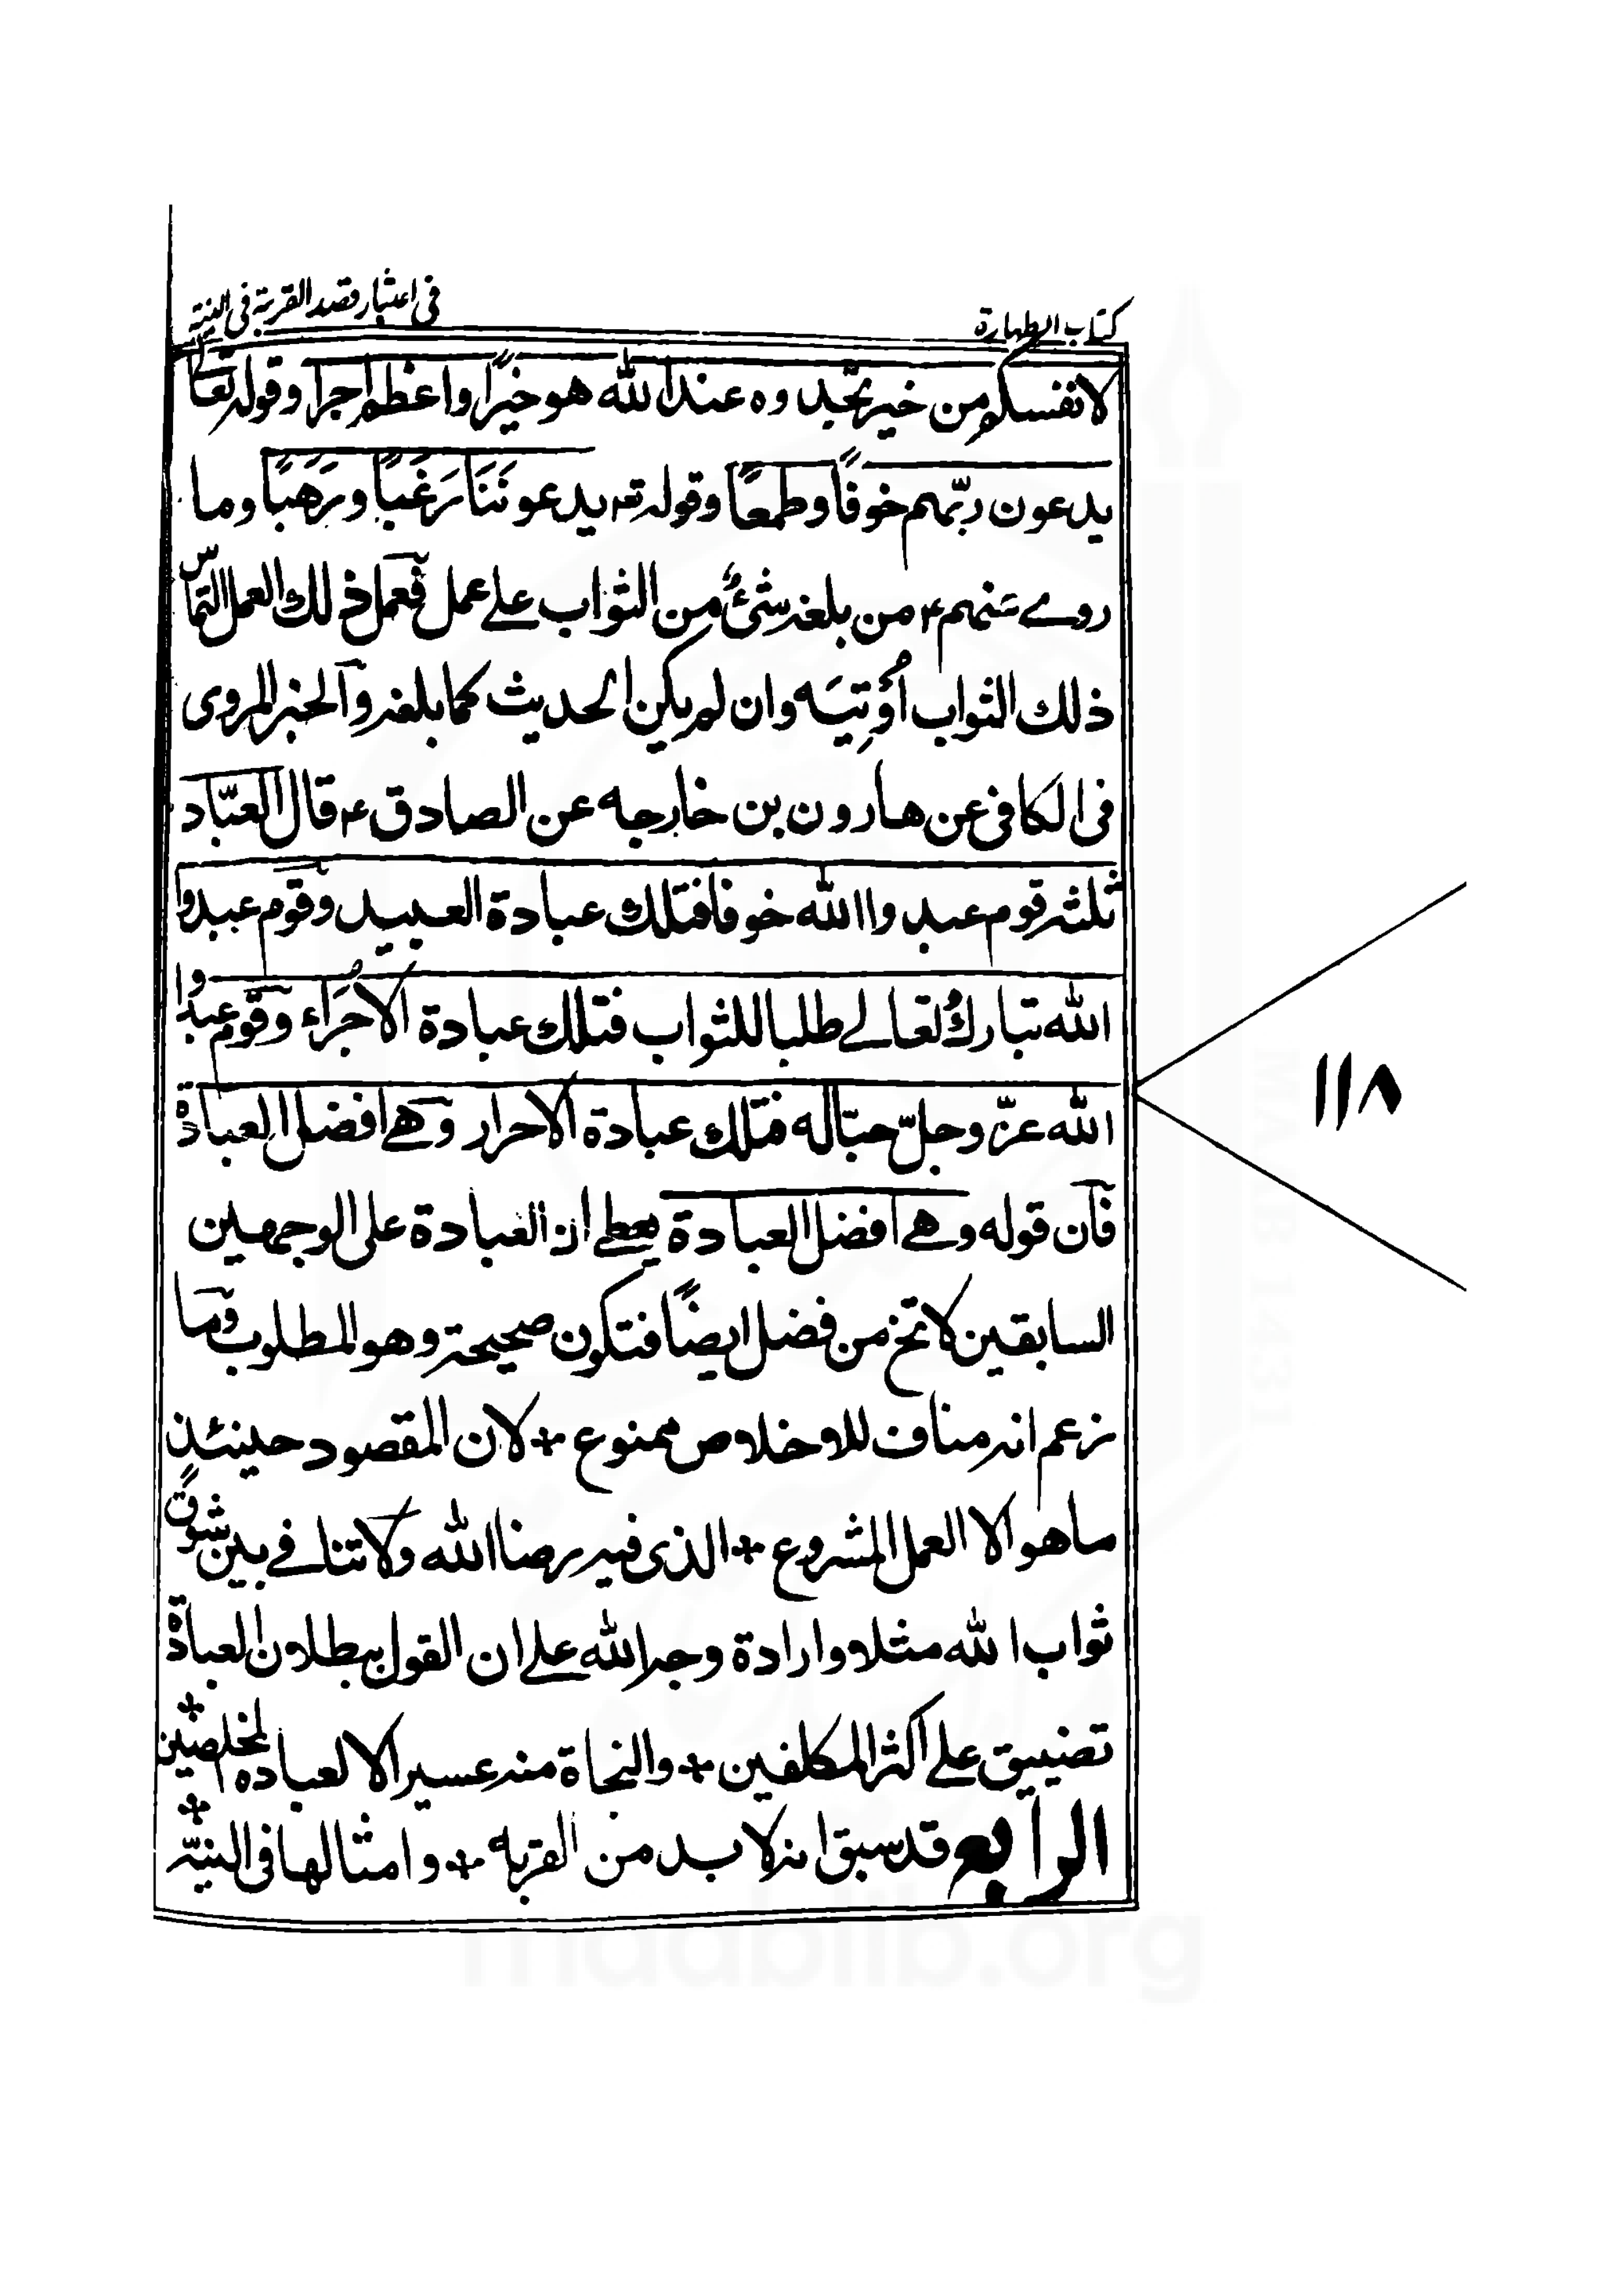 كتاب الطهارة
فى اعتبار قصد القربة فى النية
لانفسكم من خير تجدوه عند الله هو خيرًا واعظم اجرا وقوله تعالى
يدعون ربّهم خوفًا وطمعًا وقوله تع يدعوننَا رَغَبًا ورَهَبًا وما
روے عنهم ع من بلغه شئٌ من الثواب علے عمل فعمل ذلك العمل التماس
ذلك الثواب أُوتِيَه وان لم يكن الحديث كما بلغه والخبر المروى
فى الكافى عن هارون بن خارجه عن الصادق ع قال العبّاد
ثلثه قوم عبدوا الله خوفا فتلك عبادة العبيد وقوم عبدوا
الله تبارك وتعالے طلبا للثواب فتلك عبادة الاُجَراء وقوم عبدوا
الله عزّ وجلّ حبّا له فتلك عبادة الاحرار وهے افضل العبادة
فان قوله وهے افضل العبادة يعطے ان العبادة على الوجهين
السابقين لا تخ من فضل ايضًا فتكون صحيحة وهو المطلوب وما
زعم انه مناف للاخلاص ممنوع + لان المقصود حينئذ
ماهو الا العمل المشروع + الذى فيه رضا الله ولا تنافے بين شوق
ثواب الله مثلا وارادة وجه الله علے ان القول ببطلان العبادة
تضييق علے اكثر المكلفين + والنجاة منه عسير الا لعباده المخلصين +
الرابع قد سبق انه لا بد من القربه + وامثالها فى النيّه +
١١٨
maablib.org
MAAB 1431